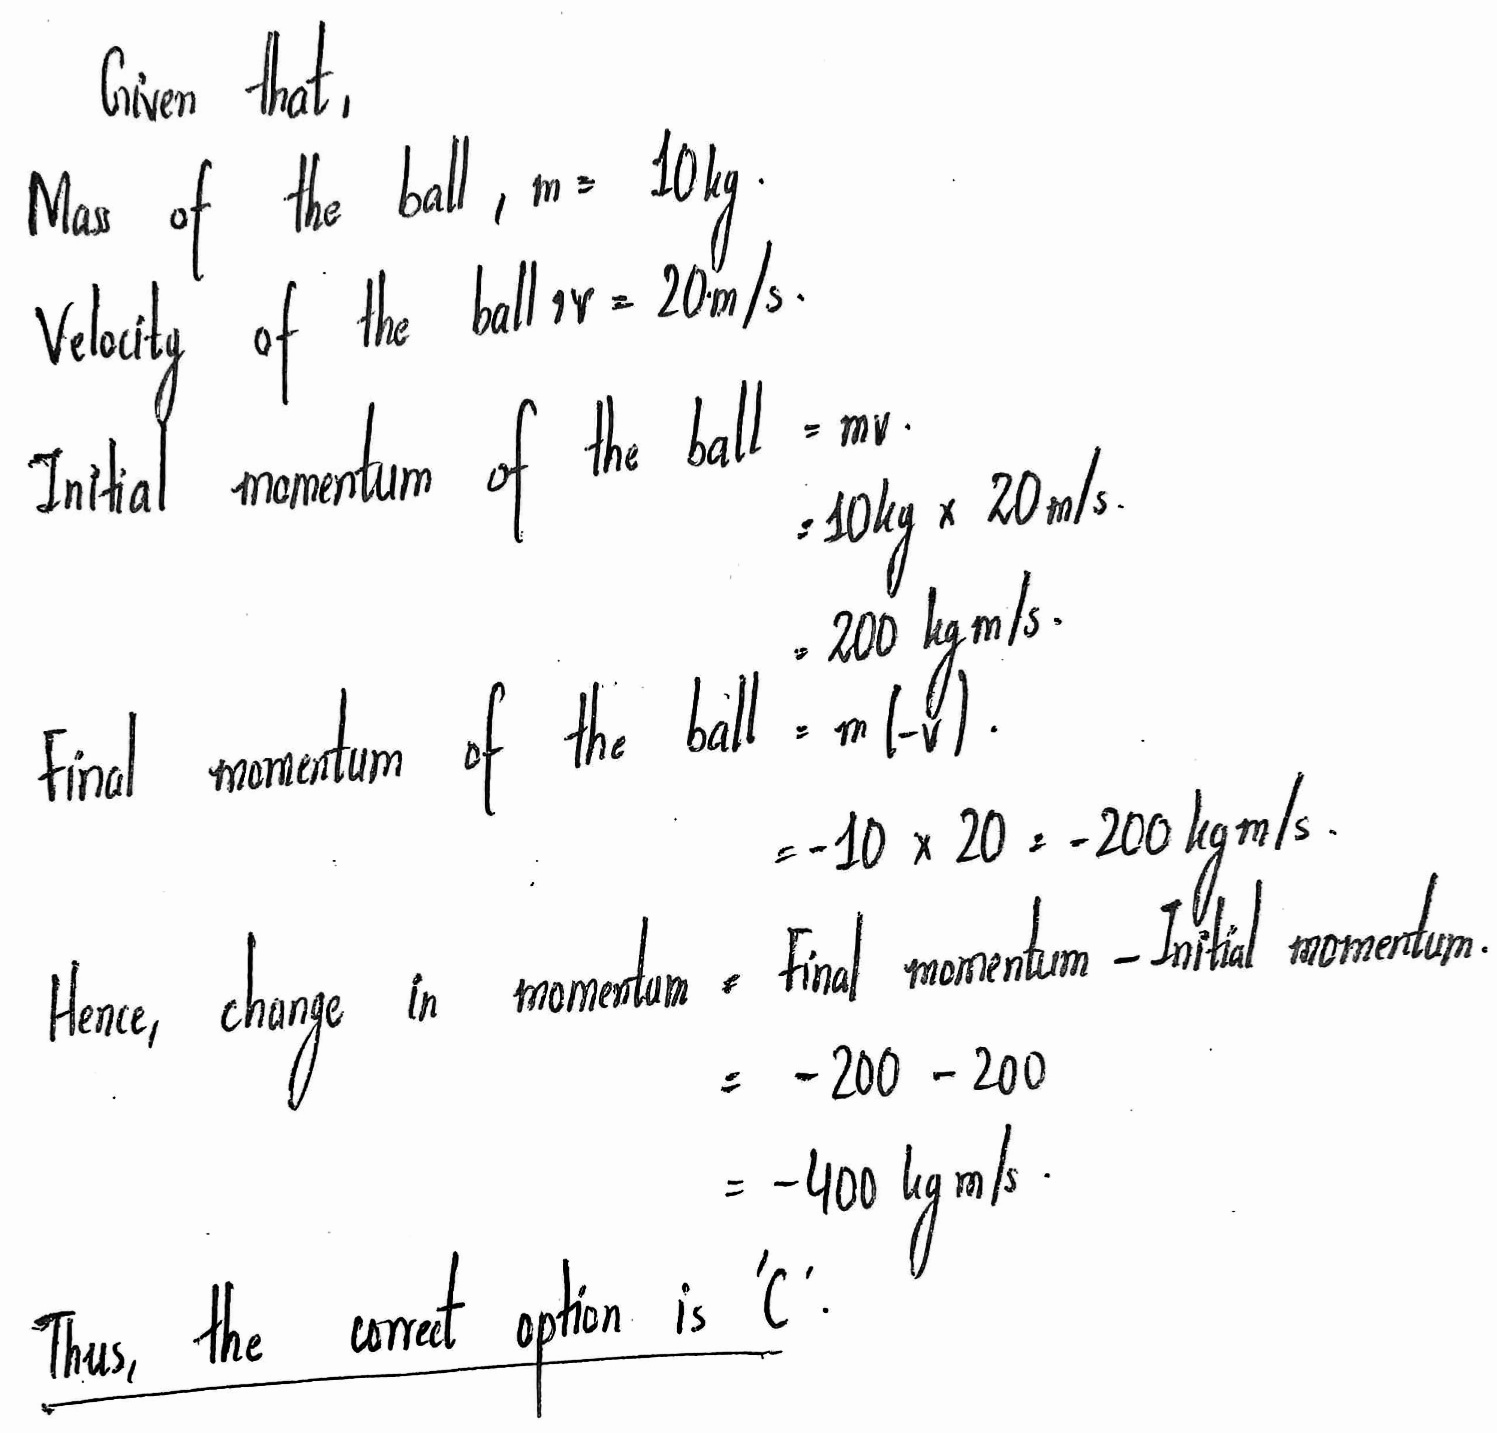 Given that,
Mass of the ball, m = 10kg.
Velocity of the ball, v = 20 m/s.
Initial momentum of the ball = mv.
= 10kg x 20 m/s.
= 200 kg m/s.
Final momentum of the ball = m (-v).
= -10 x 20 = -200 kg m/s.
Hence, change in momentum = Final momentum - Initial momentum.
= -200 - 200
= -400 kg m/s.
Thus, the correct option is 'C'.